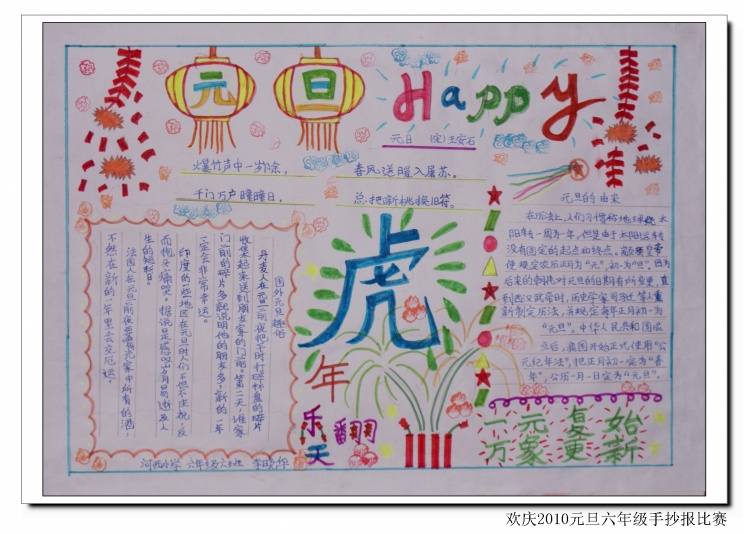 元旦
Happy
元旦 (宋)王安石
爆竹声中一岁除， 春风送暖入屠苏。
千门万户曈曈日， 总把新桃换旧符。
元旦的由来
在历法上,人们习惯称地球绕太
阳转一周为一年,但是由于太阳运转
没有固定的起点和终点,
使规定农历正月为“元”,初一为“旦”,因为
后来的朝代对元旦的日期有所变更,直
到西汉武帝时,历史学家司马迁等人重
新制定历法,并规定每年正月初一为
“元旦”。中华人民共和国成
立后,我国开始正式使用“公
元纪年法”,把正月初一定为“春
节”,公历一月一日定为“元旦”。
国外元旦趣话
丹麦人在元旦前夜把平时打碎杯盘的碎片
收集起来送到朋友家的门前。第二天,谁家
门前的碎片多就说明他的朋友多,新的一年
一定会非常幸运。
印度的一些地区在元旦时人们不但不庆祝,反
而抱头痛哭。据说是感叹岁月易逝及人
生的短暂。
法国人在元旦前夜要喝光家中所有的酒,
不然在新的一年里会交厄运。
虎
年
乐翻
天
一元复始
万家更新
河西小学 六年级六班
欢庆2010元旦六年级手抄报比赛